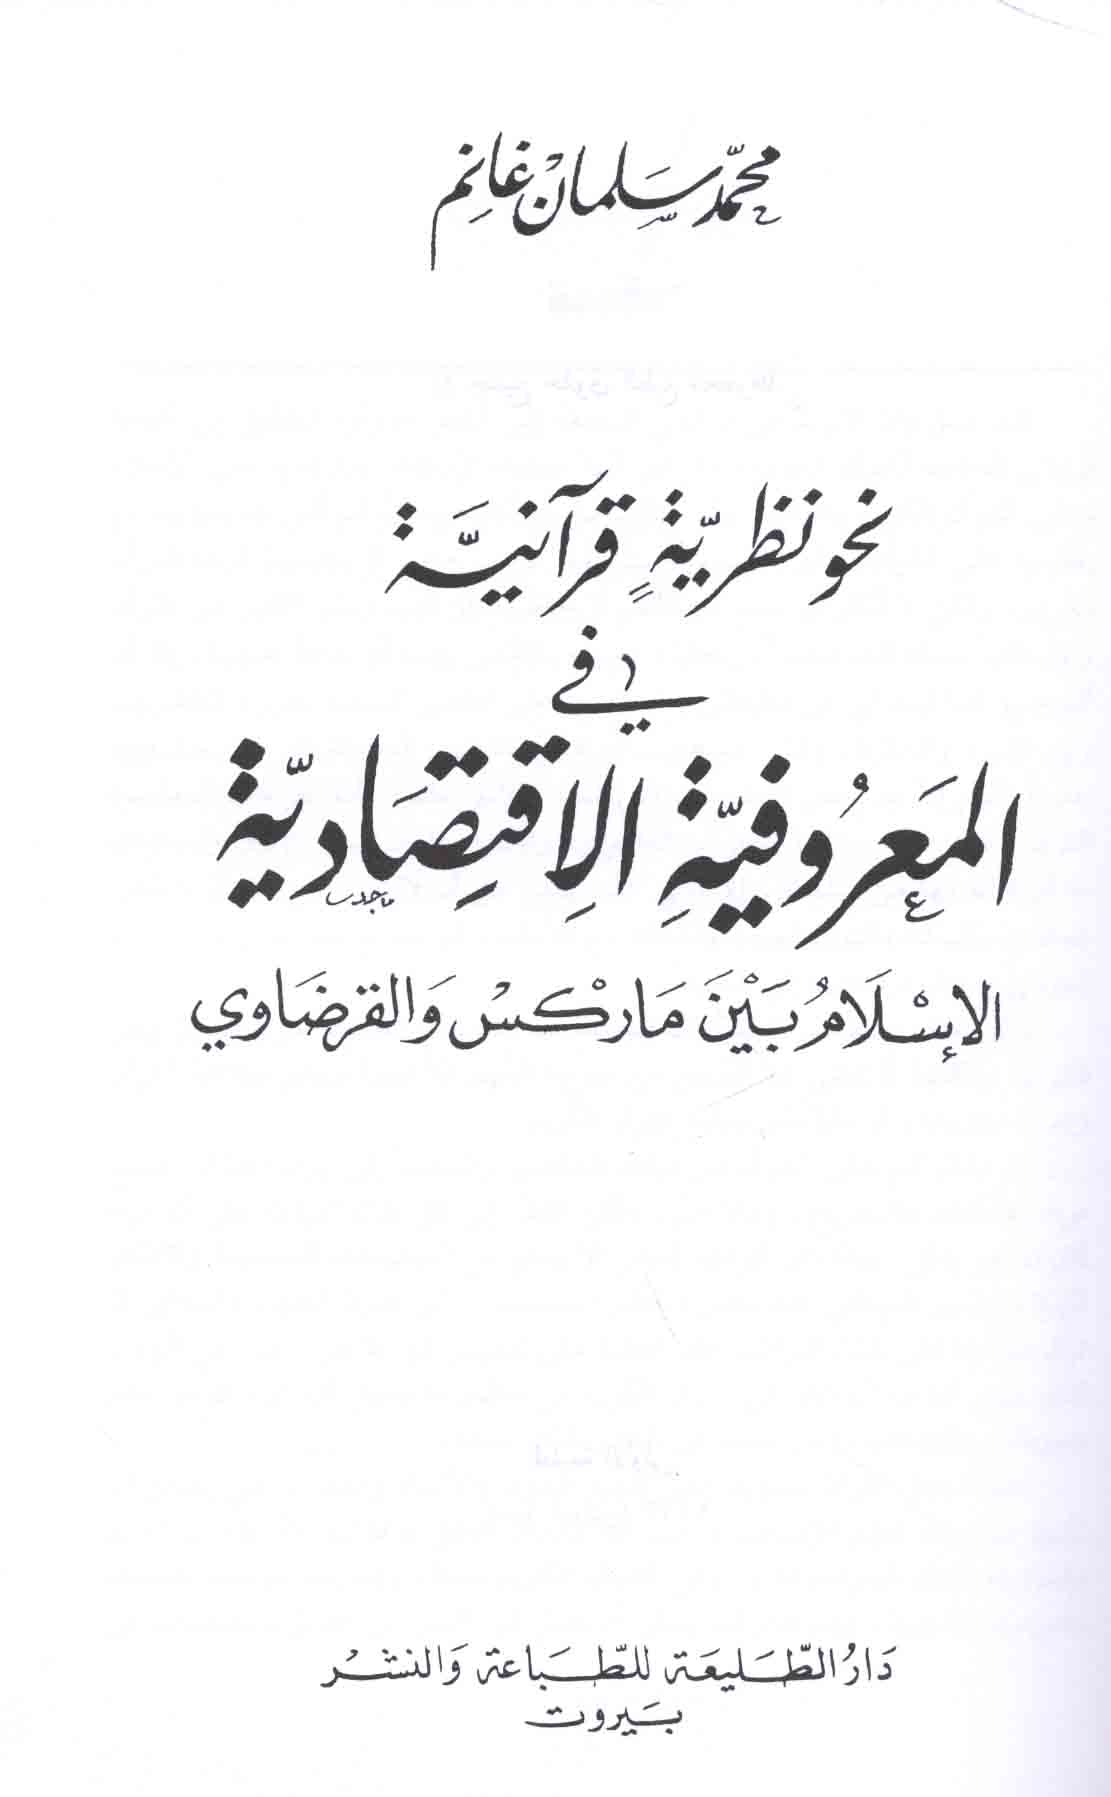 محمّد سلمان غانم
نحو نظريّةٍ قرآنيَّة
في
المَعرُوفيّةِ الاِقتِصَاديّة
ماجد
الإسْلَامُ بَيْنَ مَاركسْ وَالقرضَاوي
دَارُ الطَّليعَة للطّبَاعة وَالنشْر
بَيروت